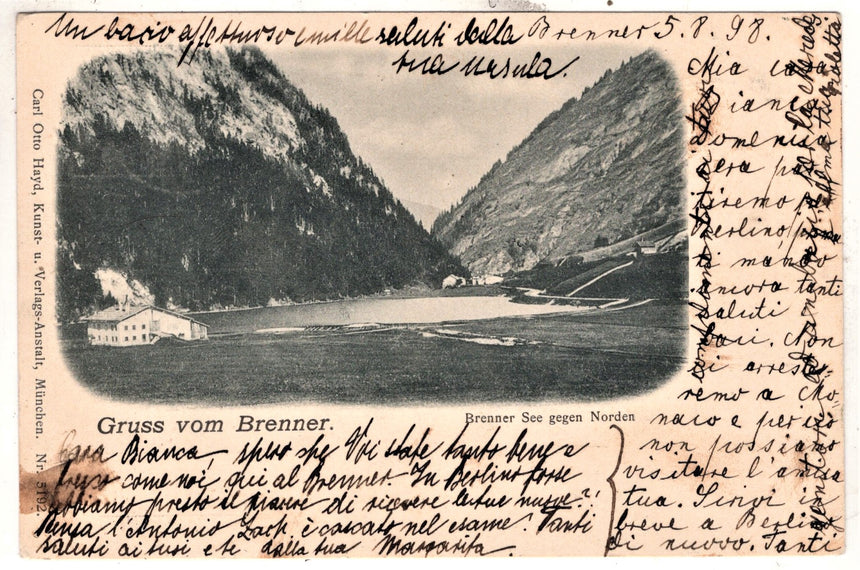 Un bacio affettuoso e mille saluti dalla Brenner 5. 8. 98.
tua Ursula.
Mia cara
Bianca
Domenica
sera par
tiremo
Berlino,
ti mando
ancora tanti
saluti
baci. Non
ci arreste-
remo a Mo-
naco e perciò
non possiamo
visitare l'amica
tua. Scrivi in
breve a Berlino
di nuovo. Tanti
Carl Otto Hayd, Kunst- u. Verlags-Anstalt, München. Nr. 5192.
Gruss vom Brenner.
Brenner See gegen Norden
Cara Bianca, spero che Voi state tanto bene e
fresco come noi, qui al Brenner. In Berlino forse
abbiamo presto il piacere di ricevere le tue nuove?!
l'Antonio Zach è cascato nel esame! Tanti
saluti ai tuoi e te dalla tua Margarita.